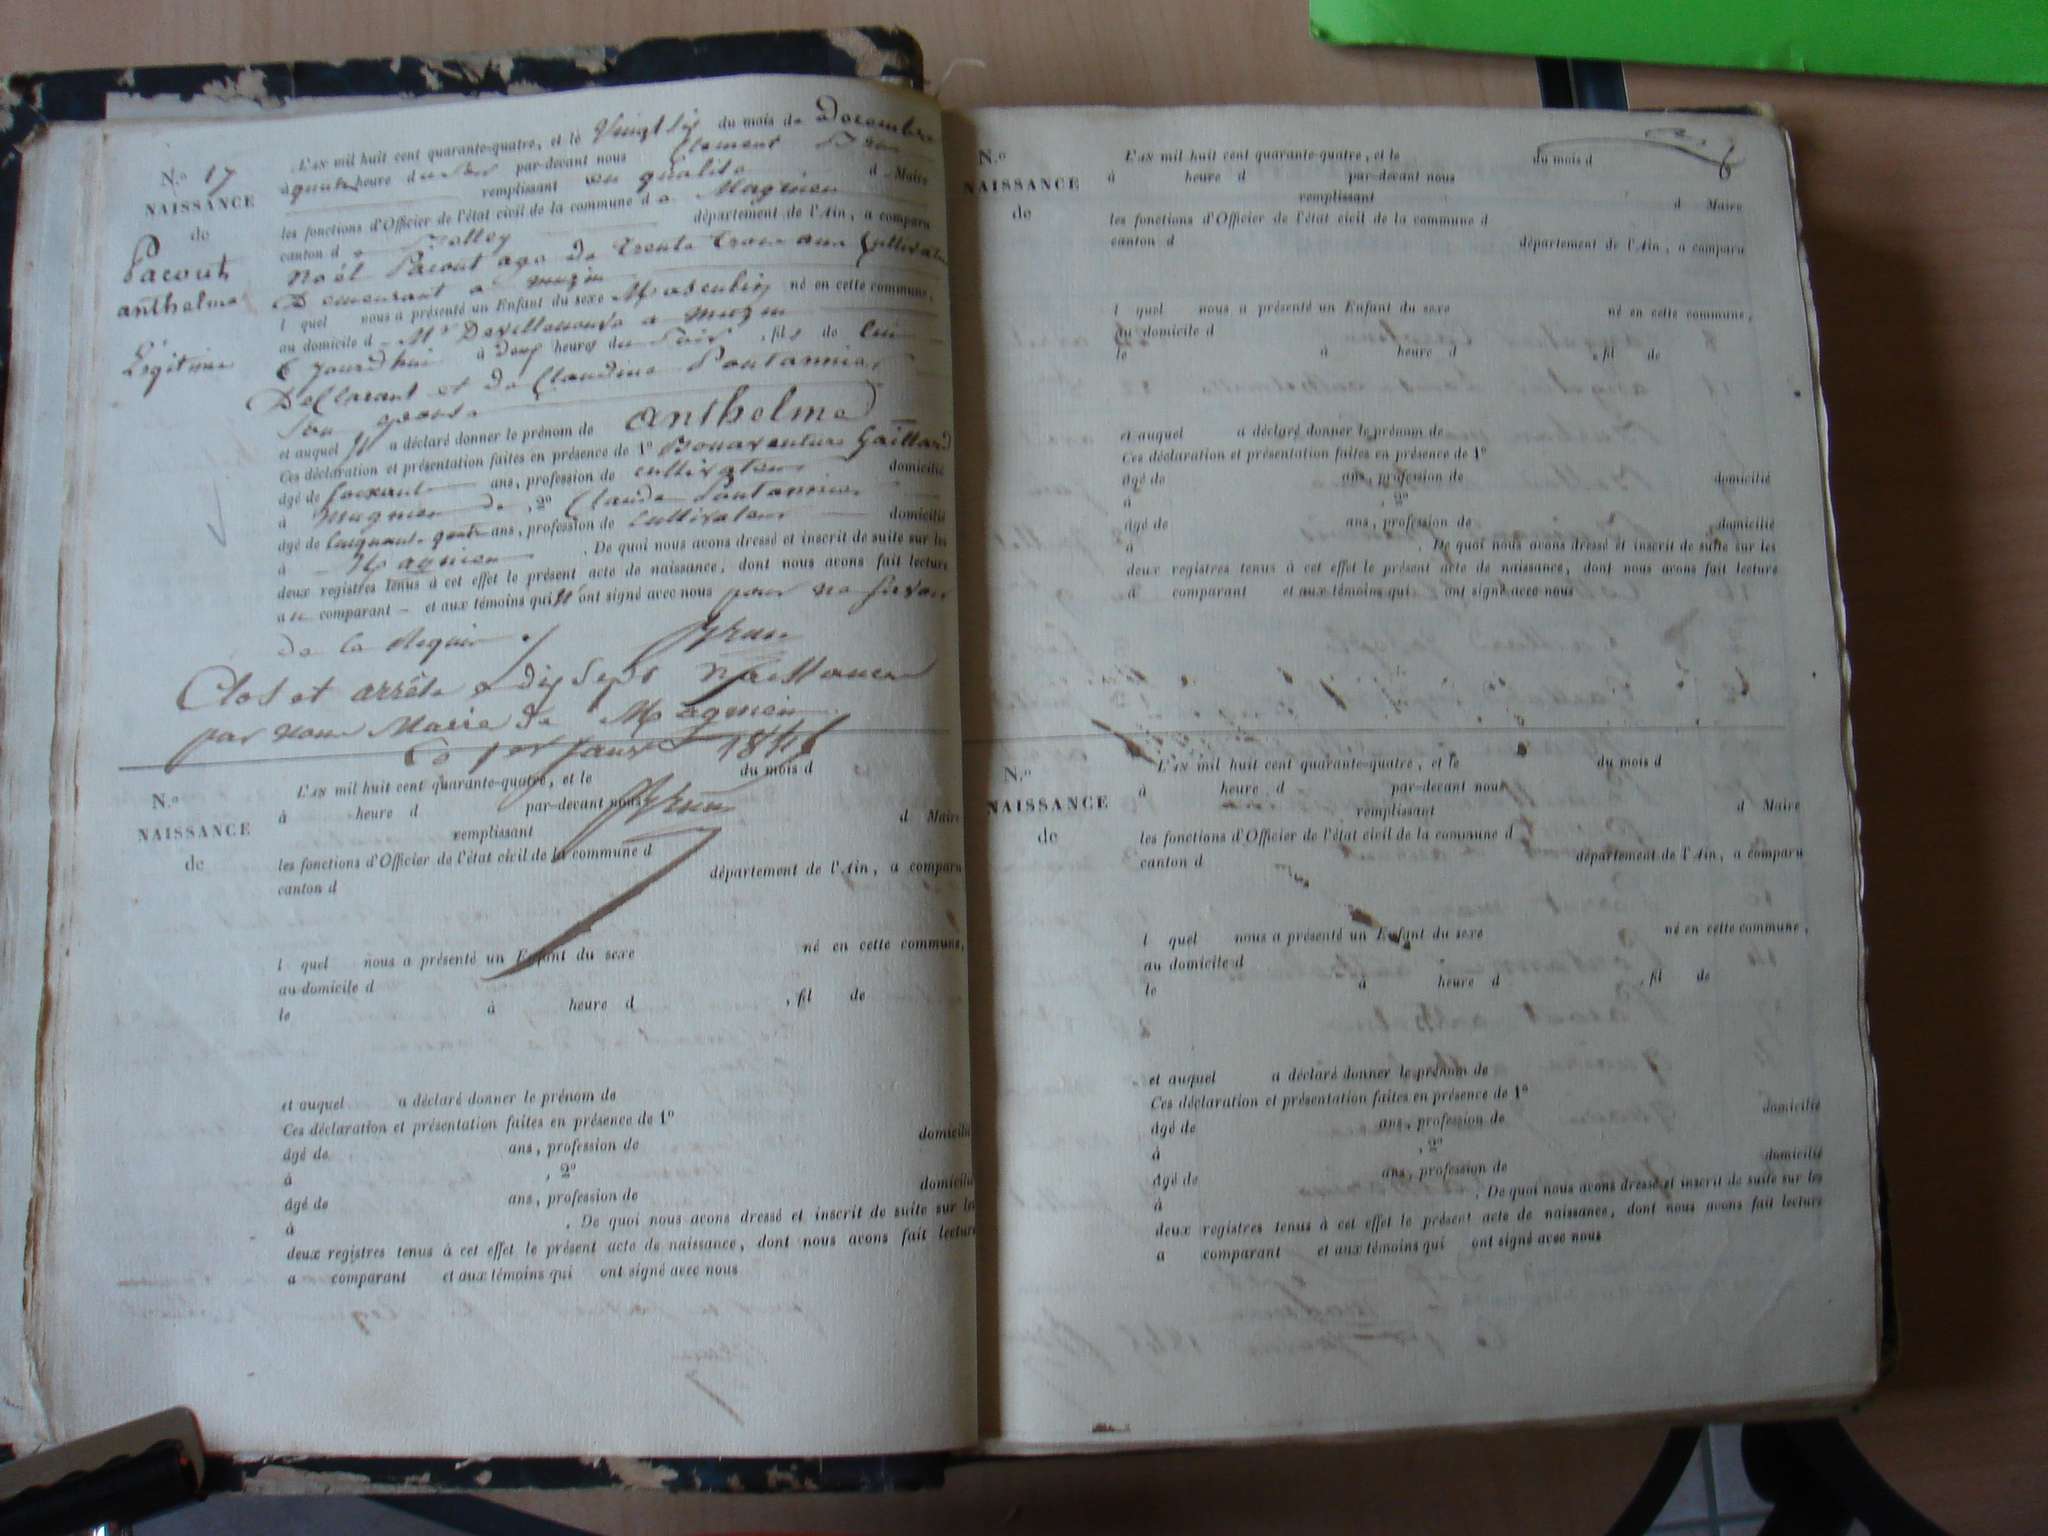 N.o 17
NAISSANCE
de
Pacout
anthelme
Légitime
L'AN mil huit cent quarante-quatre, et le Vingt Six du mois de Decembre
à quatre heure du Soir par-devant nous Clement Brun
remplissant en qualité d Maire
les fonctions d'Officier de l'état civil de la commune de Magnieu
canton de département de l'Ain, a comparu
Noël Pacout age de trente trois ans Cultivateur
Demeurant a muzin
l quel nous a présenté un Enfant du sexe Masculin né en cette commune,
au domicile d Mr Devilleneuve a muzin
à deux heures du Soir, fils de lui
Declarant et de Claudine Poutannier
Son epouse
et auquel il a déclaré donner le prénom de anthelme
Ces déclaration et présentation faites en présence de 1o Bonaventure Gaillard
âgé de Soixante ans, profession de cultivateur domicilié
à magnieu, 2o Claude Poutannier
âgé de Cinquante quatre ans, profession de Cultivateur domicilié
à Magnieu. De quoi nous avons dressé et inscrit de suite sur les
deux registres tenus à cet effet le présent acte de naissance, dont nous avons fait lecture
au comparant et aux témoins qui n ont signé avec nous pour ne Savoir
de ce Requis ./ Brun
Clos et arrêté a dix Sept naissances
par nous Maire de Magnieu
Brun
N.o
NAISSANCE
de
L'AN mil huit cent quarante-quatre, et le du mois d
à heure d par-devant nous
remplissant d Maire
les fonctions d'Officier de l'état civil de la commune d
canton d département de l'Ain, a comparu
l quel nous a présenté un Enfant du sexe né en cette commune,
au domicile d
le à heure d , fil de
et auquel a déclaré donner le prénom de
Ces déclaration et présentation faites en présence de 1o
âgé de ans, profession de domicilié
à , 2o
âgé de ans, profession de domicilié
à . De quoi nous avons dressé et inscrit de suite sur les
deux registres tenus à cet effet le présent acte de naissance, dont nous avons fait lecture
a comparant et aux témoins qui ont signé avec nous
N.o
NAISSANCE
de
L'AN mil huit cent quarante-quatre, et le du mois d
à heure d par-devant nous
remplissant d Maire
les fonctions d'Officier de l'état civil de la commune d
canton d département de l'Ain, a comparu
l quel nous a présenté un Enfant du sexe né en cette commune,
au domicile d
le à heure d , fil de
et auquel a déclaré donner le prénom de
Ces déclaration et présentation faites en présence de 1o
âgé de ans, profession de domicilié
à , 2o
âgé de ans, profession de domicilié
à . De quoi nous avons dressé et inscrit de suite sur les
deux registres tenus à cet effet le présent acte de naissance, dont nous avons fait lecture
a comparant et aux témoins qui ont signé avec nous
N.o
NAISSANCE
de
L'AN mil huit cent quarante-quatre, et le du mois d
à heure d par-devant nous
remplissant d Maire
les fonctions d'Officier de l'état civil de la commune d
canton d département de l'Ain, a comparu
l quel nous a présenté un Enfant du sexe né en cette commune,
au domicile d
le à heure d , fil de
et auquel a déclaré donner le prénom de
Ces déclaration et présentation faites en présence de 1o
âgé de ans, profession de domicilié
à , 2o
âgé de ans, profession de domicilié
à . De quoi nous avons dressé et inscrit de suite sur les
deux registres tenus à cet effet le présent acte de naissance, dont nous avons fait lecture
a comparant et aux témoins qui ont signé avec nous